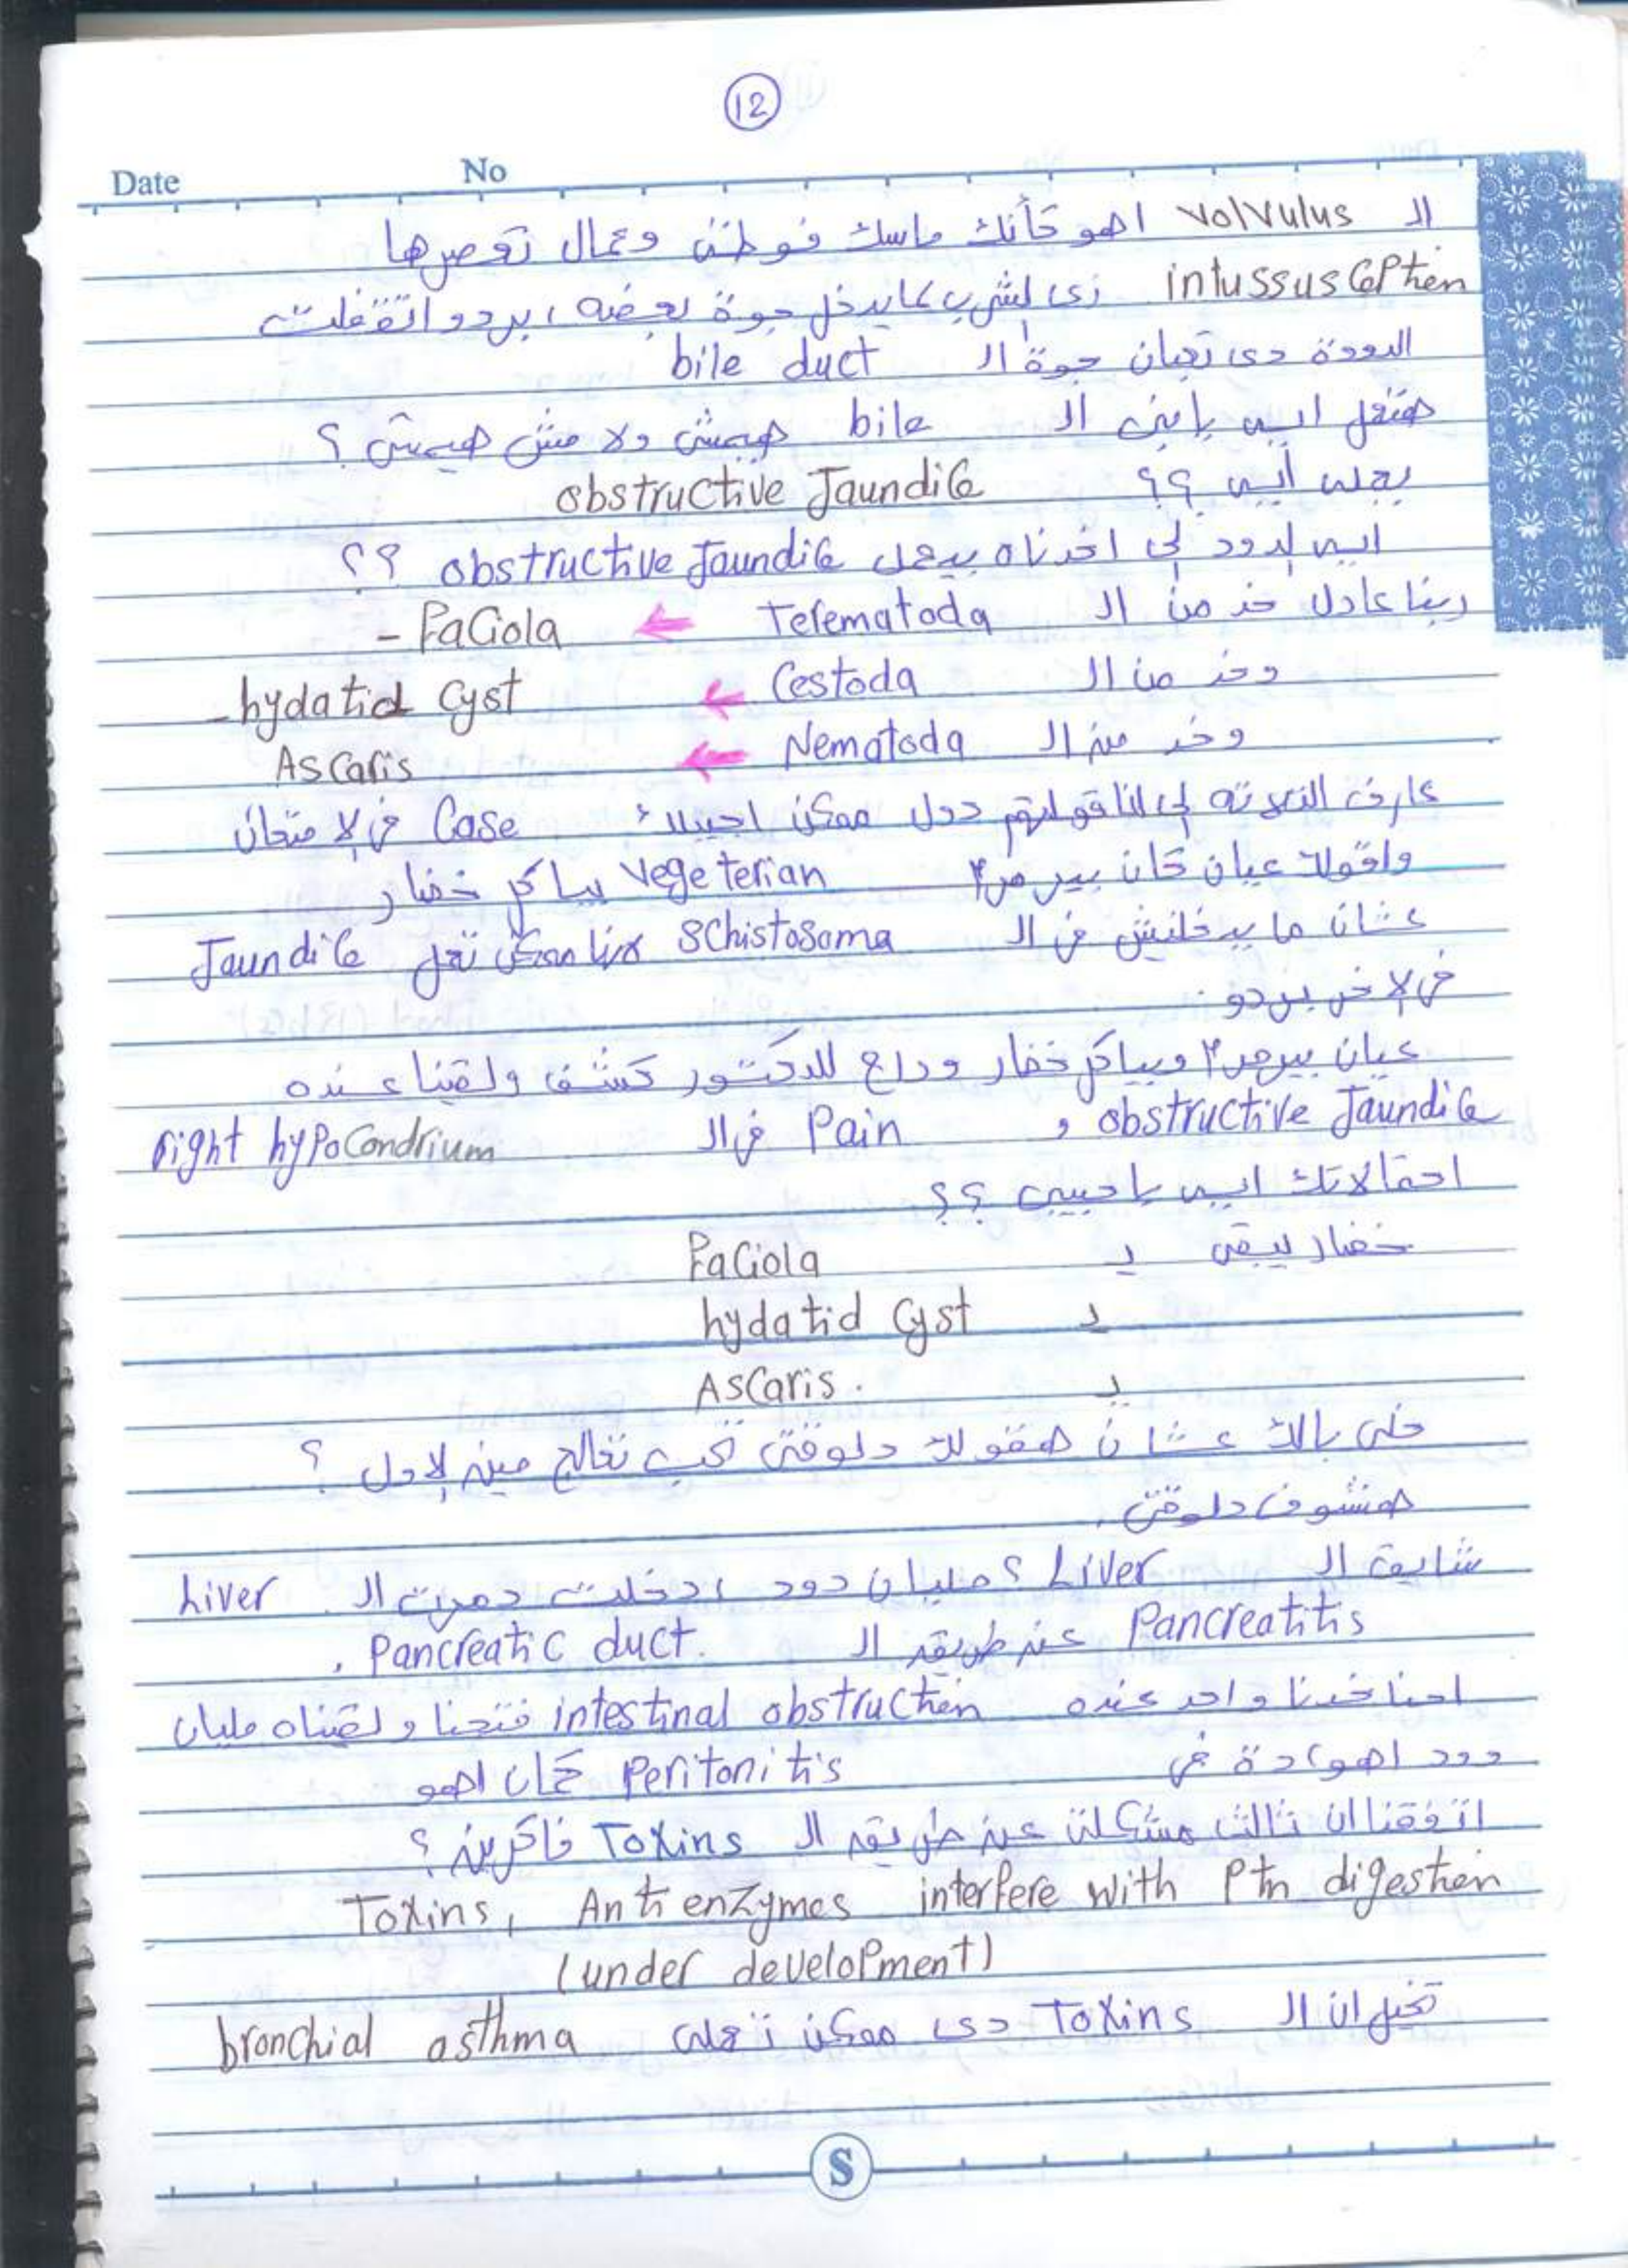 12
Date No
ال volvulus اهو كأنك ماسك فوطة وعمال تعصرها
intussusception زى الشرب لما يدخل جوة بعضه، بردو اتقفلت
الدودة دى تعبان جوة ال bile duct
هتعمل ايه يا ابنى ال bile هيمشى ولا مش هيمشى ؟
يجله أيه ؟؟ obstructive Jaundice
ايه الدود لى اخدناه بيعمل obstructive Jaundice ؟؟
ربنا عادل خد من ال Terematoda ← - Faciola
وخد من ال Cestoda ← - hydatid cyst
وخد من ال Nematoda ← Ascaris
عارف التلاته لى انا قولتهم دول ممكن اجيبلك Case فى الامتحان
واقولك عيان كان بير مر٢ vegeterian بياكل خضار
عشان ما يدخلنيش فى ال Schistosoma هنا ممكن تعمل Jaundice
فى الاخر بردو .
عيان بير مر٢ وبياكل خضار وراح للدكتور كشف ولقينا عنده
obstructive Jaundice و Pain فى ال right hypocondrium
احتمالاتك ايه يا حبيبى ؟؟
خضار يبقى يـ Faciola
يـ hydatid cyst
يـ Ascaris.
خلى بالك عشان هقولك دلوقتى تحب تعالج مين الاول ؟
هنشوف دلوقتى .
شايف ال Liver ؟ مليان دود ادخلت دمرت ال Liver
Pancreatitis عن طريق ال Pancreatic duct.
احنا خدنا واحد عنده intestinal obstruction فتحنا ولقيناه مليان
دود اهو دة فى peritonitis كمان اهو
اتفقنا ان تالت مشكلة عن طريق ال Toxins فاكرين ؟
Toxins, Anti enzymes interfere with Ptn digestion
(under development)
تخيل ان ال Toxins دى ممكن تعمله bronchial asthma
S